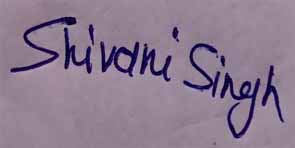 Shivani Singh